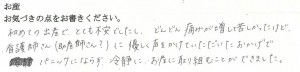 お産
お気づきの点をお書きください。
初めてのお産で、とても不安でしたし、どんどん痛みが増して苦しかったけど、
看護師さん(助産師さん?)に優しく声をかけていただいたおかげで
パニックにならず、冷静に、お産に取り組むことができました。